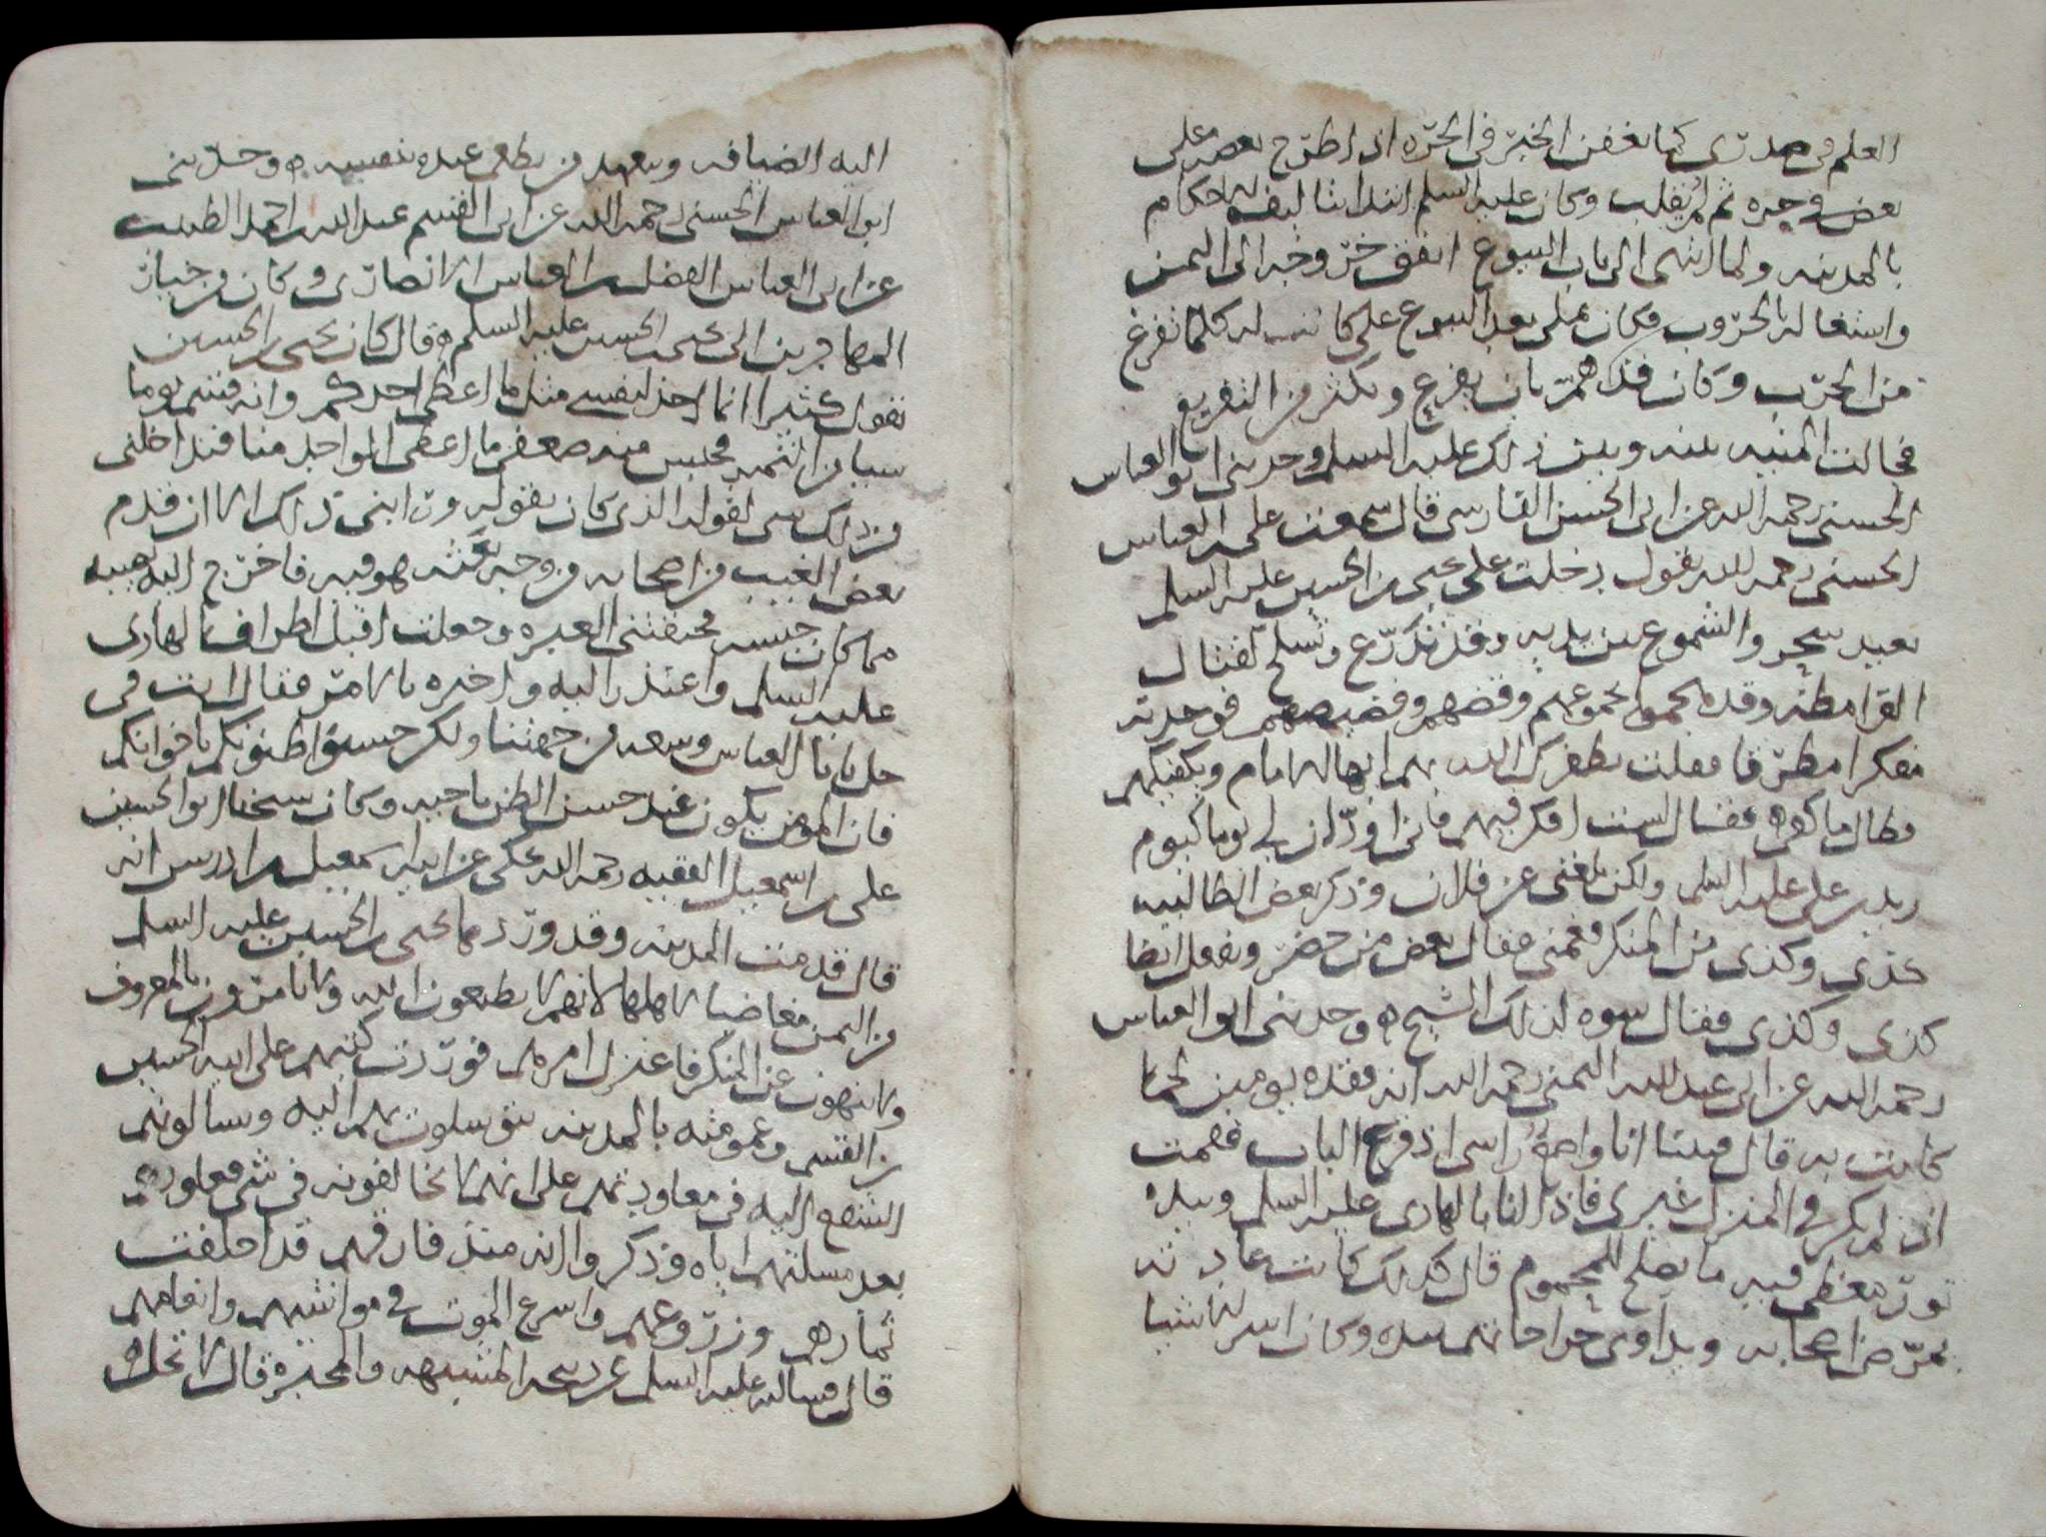 العلم في صدري كما يعفن الخبز في الجره اذا طرح بعضه على
بعض في جره ثم لم يقلب وكان عليه السلم ابتدا بتاليف الاحكام
بالمدينه ولما انتهى الى باب البيوع اتفق خروجه الى اليمن
واشتغاله بالحروب فكان يملي بعد البيوع على كاتب له كلما تفرغ
من الحرب وكان قد هم بان يفرع ويكثر من التفريع
فحالت المنيه بينه وبين ذلك عليه السلم وحدثني ابو العباس
الحسني رحمه الله عن ابي الحسن الفارسي قال سمعت علي بن العباس
الحسني رحمه الله يقول دخلت على يحيى بن الحسين عليه السلم
بعيد سحر والشموع بين يديه وقد تدرع وتسلح لقتال
القرامطه وقد نجموا بجموعهم وقضهم وقضيضهم فوجدته
مفكرا مطرقا فقلت يظفرك الله بهم ايها الامام ويكفيكهم
فطال ما كفى فقال لست افكر فيهم فاني اود ان لي يوما كيوم
زيد بن علي عليه السلم ولكن بلغني عن فلان وذكر بعض الطالبيه
كذى وكذى من المنكر فغمني فقال بعض من حضر ويفعل ايضا
كذى وكذى فقال سوه لذلك الشيخ وحدثني ابو العباس
رحمه الله عن ابي عبد الله اليمني رحمه الله انه فقده يومين لحما
كانت به قال فبينا انا واضع راسي اذ قرع الباب فقمت
اذ لم يكن في المنزل غيري فاذا انا بالهادي عليه السلم وبيده
تور مغطى فيه ما يصلح للمحموم قال كذلك كانت عادته
يمرض اصحابه ويداوي جراحاتهم بيده وكان اسر الاشيا
اليه الضيافه ويعهد من يطعمى عنده بنفسه وحدثني
ابو العباس الحسني رحمه الله عن ابي القسم عبد الله بن احمد الطيب
عن ابي العباس الفضل بن العباس الانصاري وكان من خيار
المهاجرين الى يحيى بن الحسين عليه السلم قال كان يحيى بن الحسين
يقول كثيرا انما اخذ لنفسي مثل ما اعطي احدكم وانه قسم يوما
شيا من التمر فحبس منه ضعفي ما اعطى الواحد منا فتداخلني
من ذلك شي لقوله الذي كان يقوله ورابني ذلك الا ان قدم
بعض الغيب من اصحابه من وجه بعثه هو فيه فاخرج اليه نصيبه
مما كان حبسه فخنقتني العبره وجعلت اقبل اطراف الهادي
عليه السلم واعتذر اليه واخبره بالامر فقال انت في
حل يا با العباس وسعه من جهتنا ولكن حسنوا ظنونكم باخوانكم
فان المومن يكون عند حسن الظن باخيه وكان شيخنا ابو الحسين
علي بن اسمعيل الفقيه رحمه الله يحكي عن ابيه اسمعيل بن ادريس انه
قال قدمت المدينه وقد وردها يحيى بن الحسين عليه السلم
من اليمن مغاضبا لاهلها لانهم لا يطيعون الله ولا يامرون بالمعروف
ولا ينهون عن المنكر فاعتزل امرهم فوردت كتبهم على ابيه الحسين
بن القسم وعمومته بالمدينه يتوسلون بهم اليه ويسالونهم
التشفع اليه في معاودتهم على انهم لا يخالفونه في شي فعاودهم
بعد مسلتهم اياه وذكروا انه منذ فارقهم قد اخلفت
ثمارهم وزروعهم واسرع الموت في مواشيهم وانعامهم
قال فسالته عليه السلم عن ذبيحه المشبهه والمجبره قال لا تحل